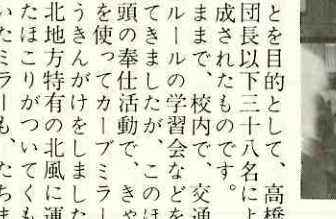 とを目的として、高橋
団長以下三十八名によ
成されたものです。
ままで、校内で、交通
ルールの学習会などを
てきましたが、このほ
頭の奉仕活動で、きゃ
を使ってカーブミラー
うきんがけをしました
北地方特有の北風に運
たほこりがついてくも
いたミラーも、たちま